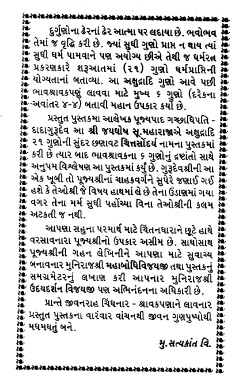 દુર્ગુણોના ઢેરનાં ઢેર આત્મા પર લદાયા છે. ભવોભવ
તેમાં જ વૃદ્ધિ કરી છે. જ્યાં સુધી ગુણો પ્રાપ્ત ન થાય ત્યાં
સુધી ધર્મ પામવાને પણ અયોગ્ય છીએ તેથી જ ધર્મરત્ન
પ્રકરણકારે શરૂઆતમાં (૨૧) ગુણો ધર્મપ્રાપ્તિની
યોગ્યતાનાં બતાવ્યા. આ અક્ષુદ્રાદિ ગુણો આવે પછી
ભાવશ્રાવકપણું લાવવા માટે મુખ્ય ૬ ગુણો (દરેકના
અવાંતર ૪-૪) બતાવી મહાન ઉપકાર કર્યો છે.
પ્રસ્તુત પુસ્તકમાં આલેખક પૂજ્યપાદ ગચ્છાધિપતિ -
દાદાગુરુદેવ આ શ્રી જયઘોષ સૂ.મહારાજાએ અક્ષુદ્રાદિ
૨૧ ગુણોની સુંદર છણાવટ ચિત્તસૌંદર્ય નામના પુસ્તકમાં
કરી છે ત્યાર બાદ ભાવશ્રાવકના ૬ ગુણોનું દ્રષ્ટાંતો સાથે
અનુપમ વિશ્લેષણ આ પુસ્તકમાં કર્યું છે. ગુરુદેવશ્રીની આ
એક ખૂબી તો પૂજ્યશ્રીનાં ચાહકવર્ગને સુપેરે જણાઈ ગઈ
હશે કે તેઓશ્રી જે વિષય હાથમાં લે છે તેના ઉંડાણમાં ગયા
વગર તેના મર્મ સુધી પહોંચ્યા વિના તેઓશ્રીની કલમ
અટકતી જ નથી.
આપણા સહુના પરમાર્થ માટે ચિંતનધારાને છૂટે હાથે
વરસાવનારા પૂજ્યશ્રીનો ઉપકાર અસીમ છે. સાથોસાથ
પૂજ્યશ્રીની ગહન લેખિનીને આપણા માટે સુવાચ્ય
બનાવનાર મુનિરાજશ્રી મહાબોધિવિજયજી તથા પુસ્તકનું
સમગ્રમેટરનું લખાણ કરી આપનાર મુનિરાજશ્રી
ઉદયદર્શન વિજયજી પણ અભિનંદનના અધિકારી છે.
પ્રાન્તે જીવનરાહ ચિંધનાર - શ્રાવકપણાને લાવનાર
પ્રસ્તુત પુસ્તકના વારંવાર વાંચનથી જીવન ગુણપુષ્પોથી
મઘમઘતું બને.
મુ. સત્યકાંત વિ.